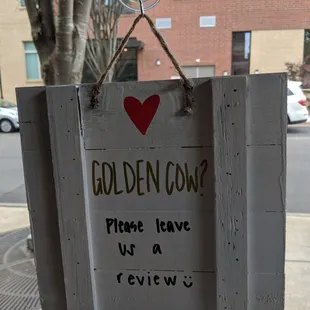 GOLDEN COW?
Please leave
us a
review